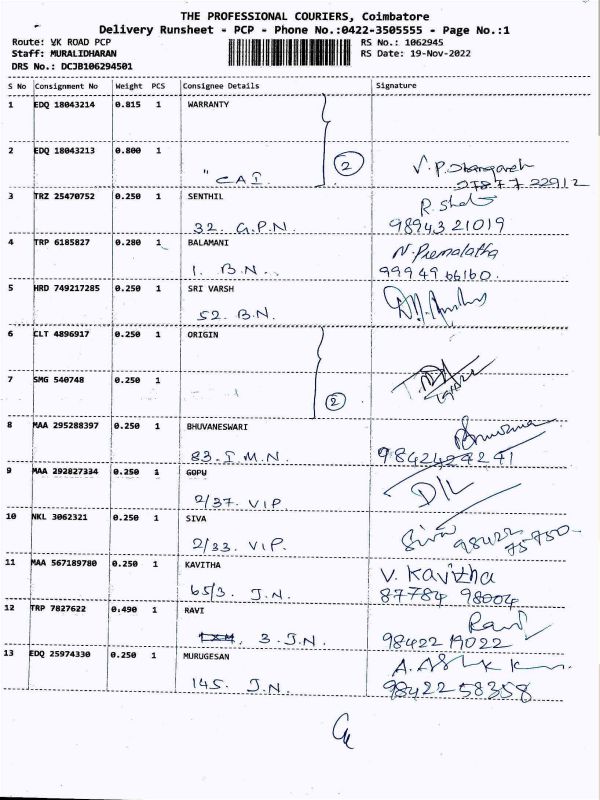 THE PROFESSIONAL COURIERS, Coimbatore
Delivery Runsheet - PCP - Phone No.:0422-3505555 - Page No.:1
Route: VK ROAD PCP RS No.: 1062945
Staff: MURALIDHARAN RS Date: 19-Nov-2022
DRS No.: DCJB106294501
S No Consignment No Weight PCS Consignee Details Signature
1 EDQ 18043214 0.815 1 WARRANTY
2 EDQ 18043213 0.800 1
" CAI 2 V.P.
27877 22912
3 TRZ 25470752 0.250 1 SENTHIL
32. G.P.N. 98943 21019
4 TRP 6185827 0.280 1 BALAMANI N. Premalatha
1. B.N. 99949 66160.
5 HRD 749217285 0.250 1 SRI VARSH
52. B.N.
6 CLT 4896917 0.250 1 ORIGIN
7 SMG 540748 0.250 1
2
8 MAA 295288397 0.250 1 BHUVANESWARI
83. I.M.N.
9 MAA 292827334 0.250 1 GOPU
2/37. VIP D/L
10 NKL 3062321 0.250 1 SIVA
2/33. VIP. Siva 98422
75750
11 MAA 567189780 0.250 1 KAVITHA V. Kavitha
65/3. J.N. 87784 98004
12 TRP 7827622 0.490 1 RAVI Ravi
3. J.N. 98422 19022
13 EDQ 25974330 0.250 1 MURUGESAN
145. J.N. 98422 58358